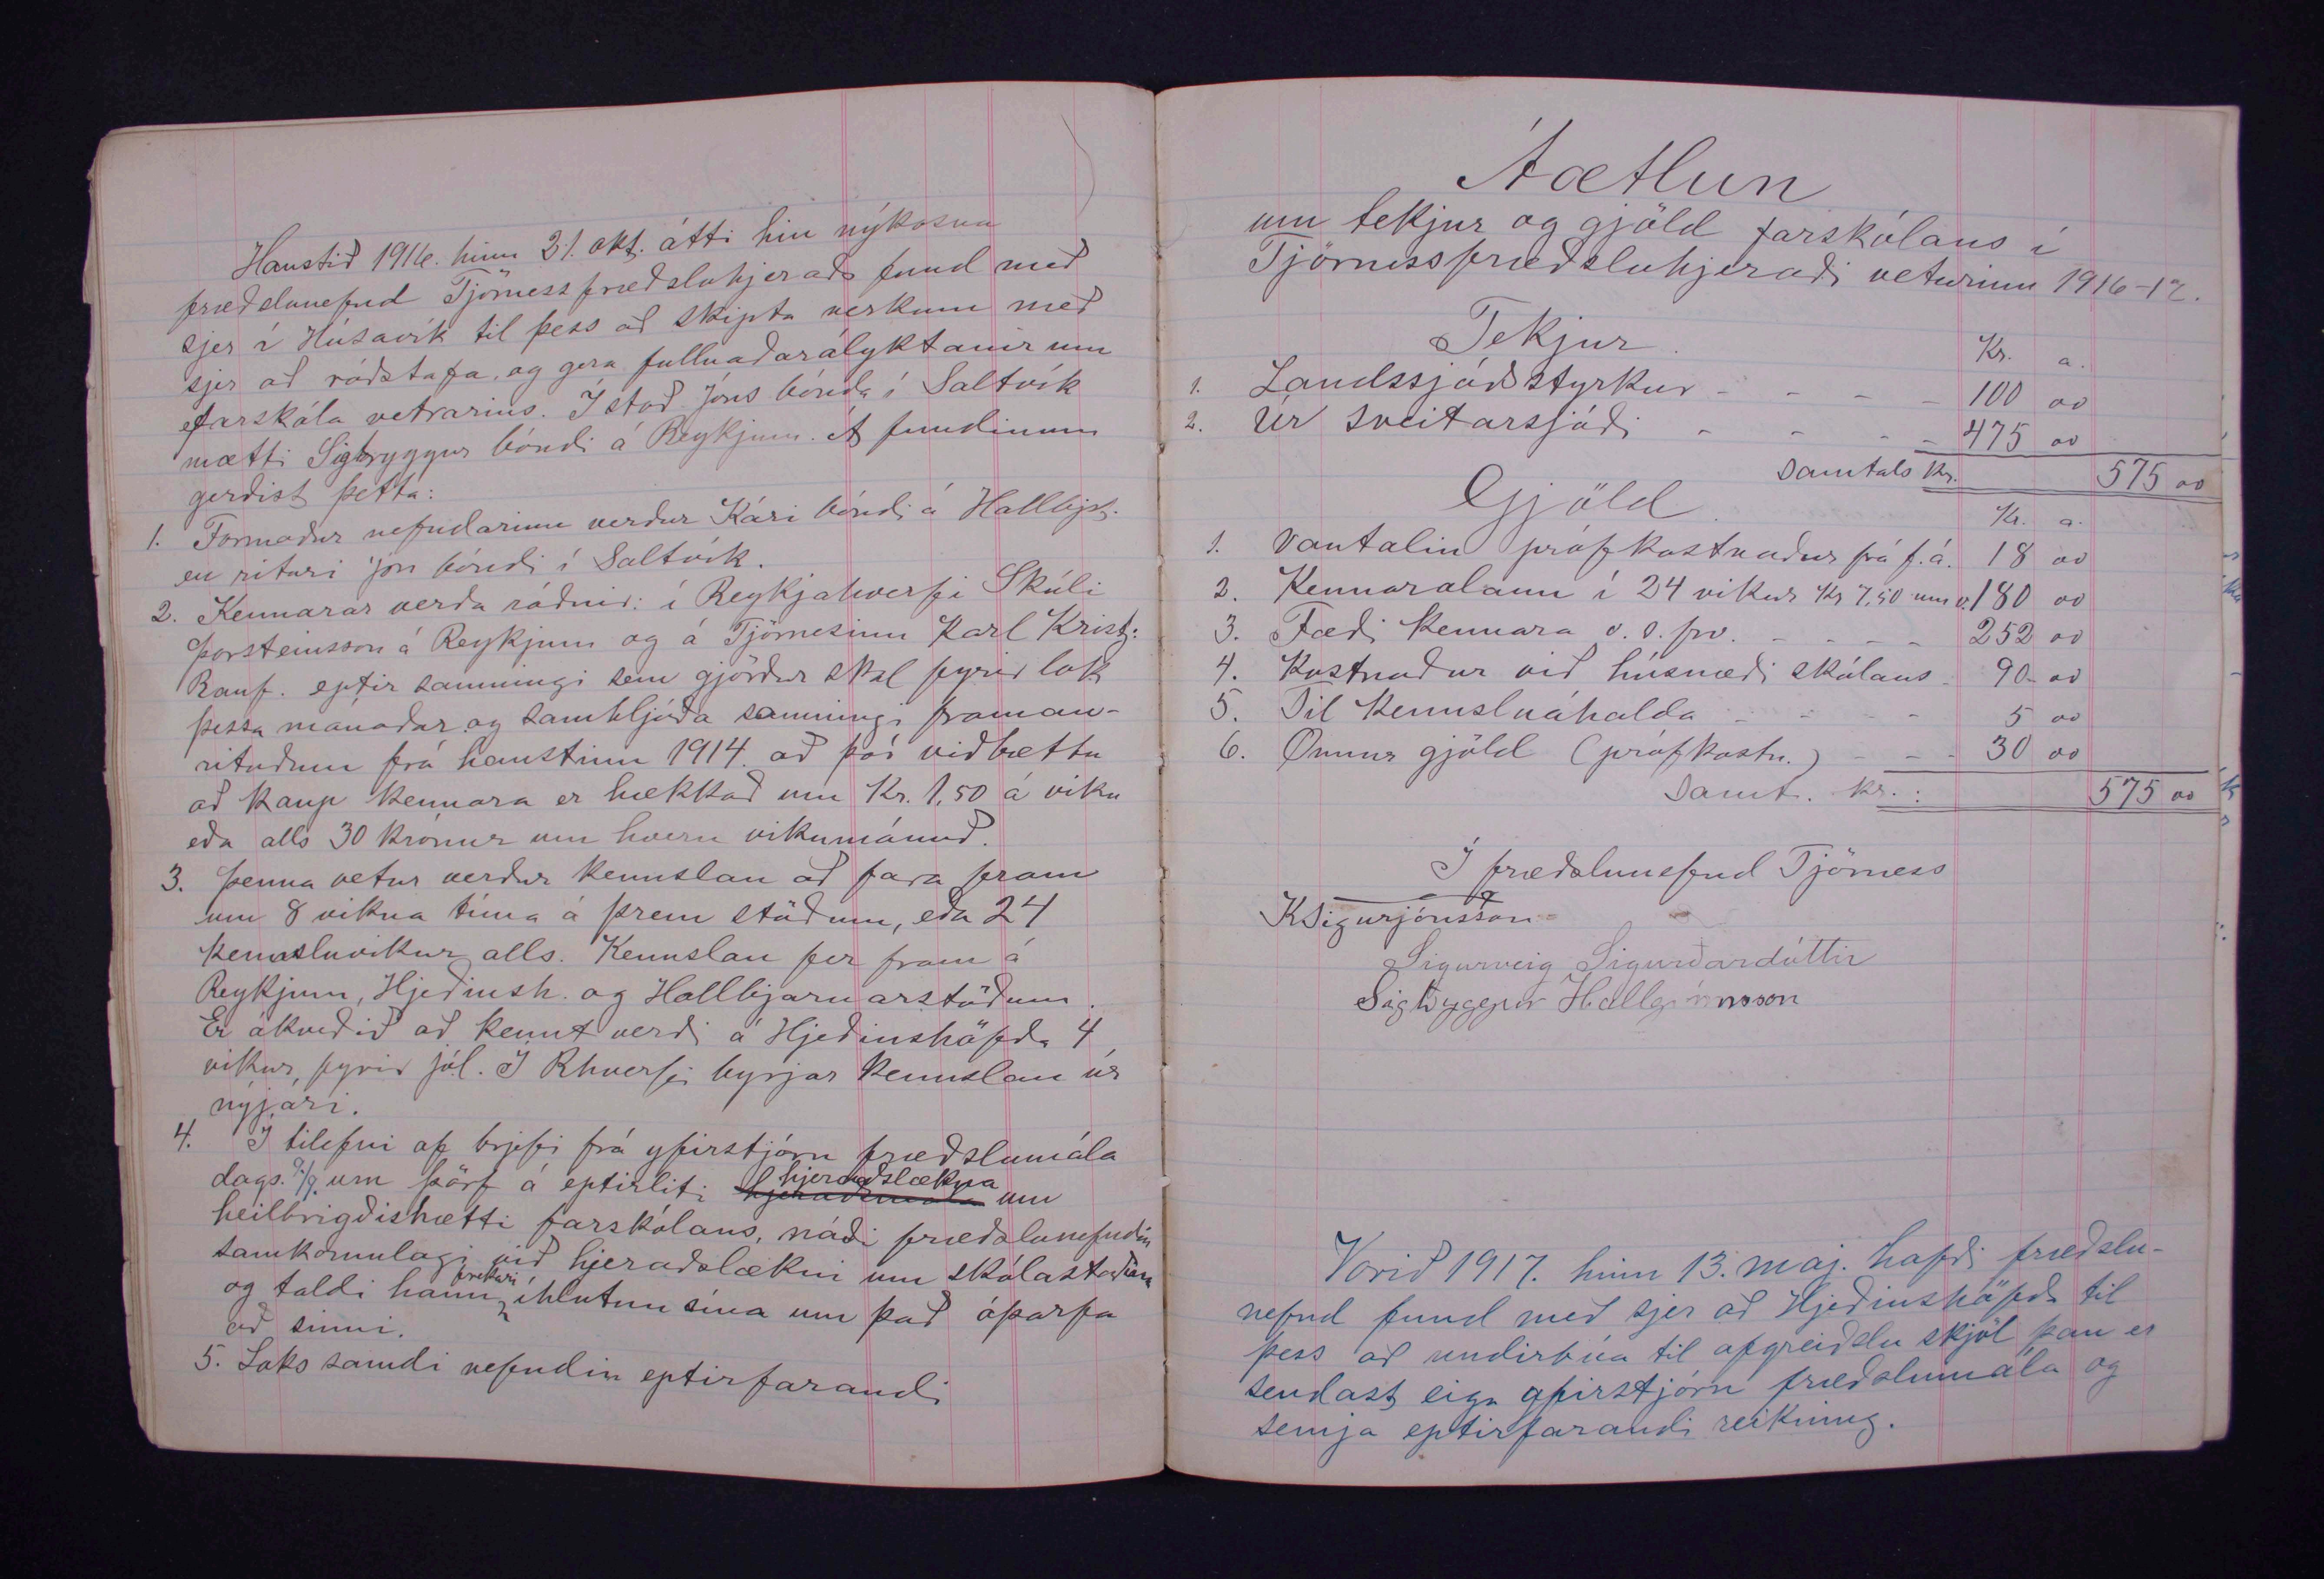 Haustið 1916. hinn 21. okt. átti hin nýkosna
fræðslunefnd Tjörnessfræðsluhjeraðs fund með
sjer í Húsavík til þess að skipta verkum með
sjer að ráðstafa, og gera fullnaðarályktanir um
farskóla vetrarins. Í stað Jóns bónda í Saltvík
mætti Sigtryggur bóndi á Reykjum. Á fundinum
gerðist þetta:
1. Formaður nefndarinn verður Kári bóndi á Hallbjst.
en ritari Jón bóndi í Saltvík.
2. Kennarar verða ráðnir: í Reykjahverfi Skúli
Þorsteinsson á Reykjum og á Tjörnesinu Karl Kristj:
Rauf. eptir samningi sem gjörður skal fyrir lok
þessa mánaðar og samhljóða samningi framan-
rituðum frá haustinu 1914. að því viðbættu
að kaup kennara er hækkað um Kr. 1,50 á viku
eða alls 30 krónur um hvern vikumánuð.
3. Þenna vetur verður kennslan að fara fram
um 8 vikna tíma á þrem stöðum, eða 24
kennsluvikur alls. Kennslan fer fram á
Reykjum, Hjeðinsh. og Hallbjarnarstöðum.
Er ákveðið að kennt verði á Hjeðinshöfða 4
vikur, fyrir jól. Í Rhverfi byrjar kennslan úr
nýjári.
4. Í tilefni af brjefi frá yfirstjórn fræðslumála
dags. 9/9. um þörf á eptirliti hjeraðslækna um
heilbrigðishætti farskólans, náði fræðslunefndin
samkomulagi við hjeraðslækni um skólastaðina
og taldi hann frekari íhlutun sína um það óþarfa
að sinni.
5. Loks samdi nefndin eptirfarandi
Áætlun
um tekjur og gjöld farskólans í
Tjörnessfræðsluhjeraði veturinn 1916-17.
Tekjur. Kr. a.
1. Landssjóðsstyrkur - - - - 100 00
2. Úr sveitarsjóði - - - - 475 00
Samtals Kr. 575 00
Gjöld. Kr. a.
1. Vantalin prófkostnaður frá f. á. 18 00
2. Kennaralaun í 24 vikur Kr 7,50 um v. 180 00
3. Fæði kennara o. s. frv. - - - - 252 00
4. Kostnaður við húsnæði skólans - 90 00
5. Til kennsluáhalda - - - - 5 00
6. Önnur gjöld (prófkostn.) - - - 30 00
Samt. kr.: 575 00
Í fræðslunefnd Tjörness
KSigurjónsson
Sigurveig Sigurðardóttir
Sigtryggur Hallgrímsson
Vorið 1917. hinn 13. maj. hafði fræðslu-
nefnd fund með sjer að Hjeðinshöfða til
þess að undirbúa til afgreiðslu skjöl þau er
sendast eiga yfirstjórn fræðslumála og
semja eptirfarandi reikning.